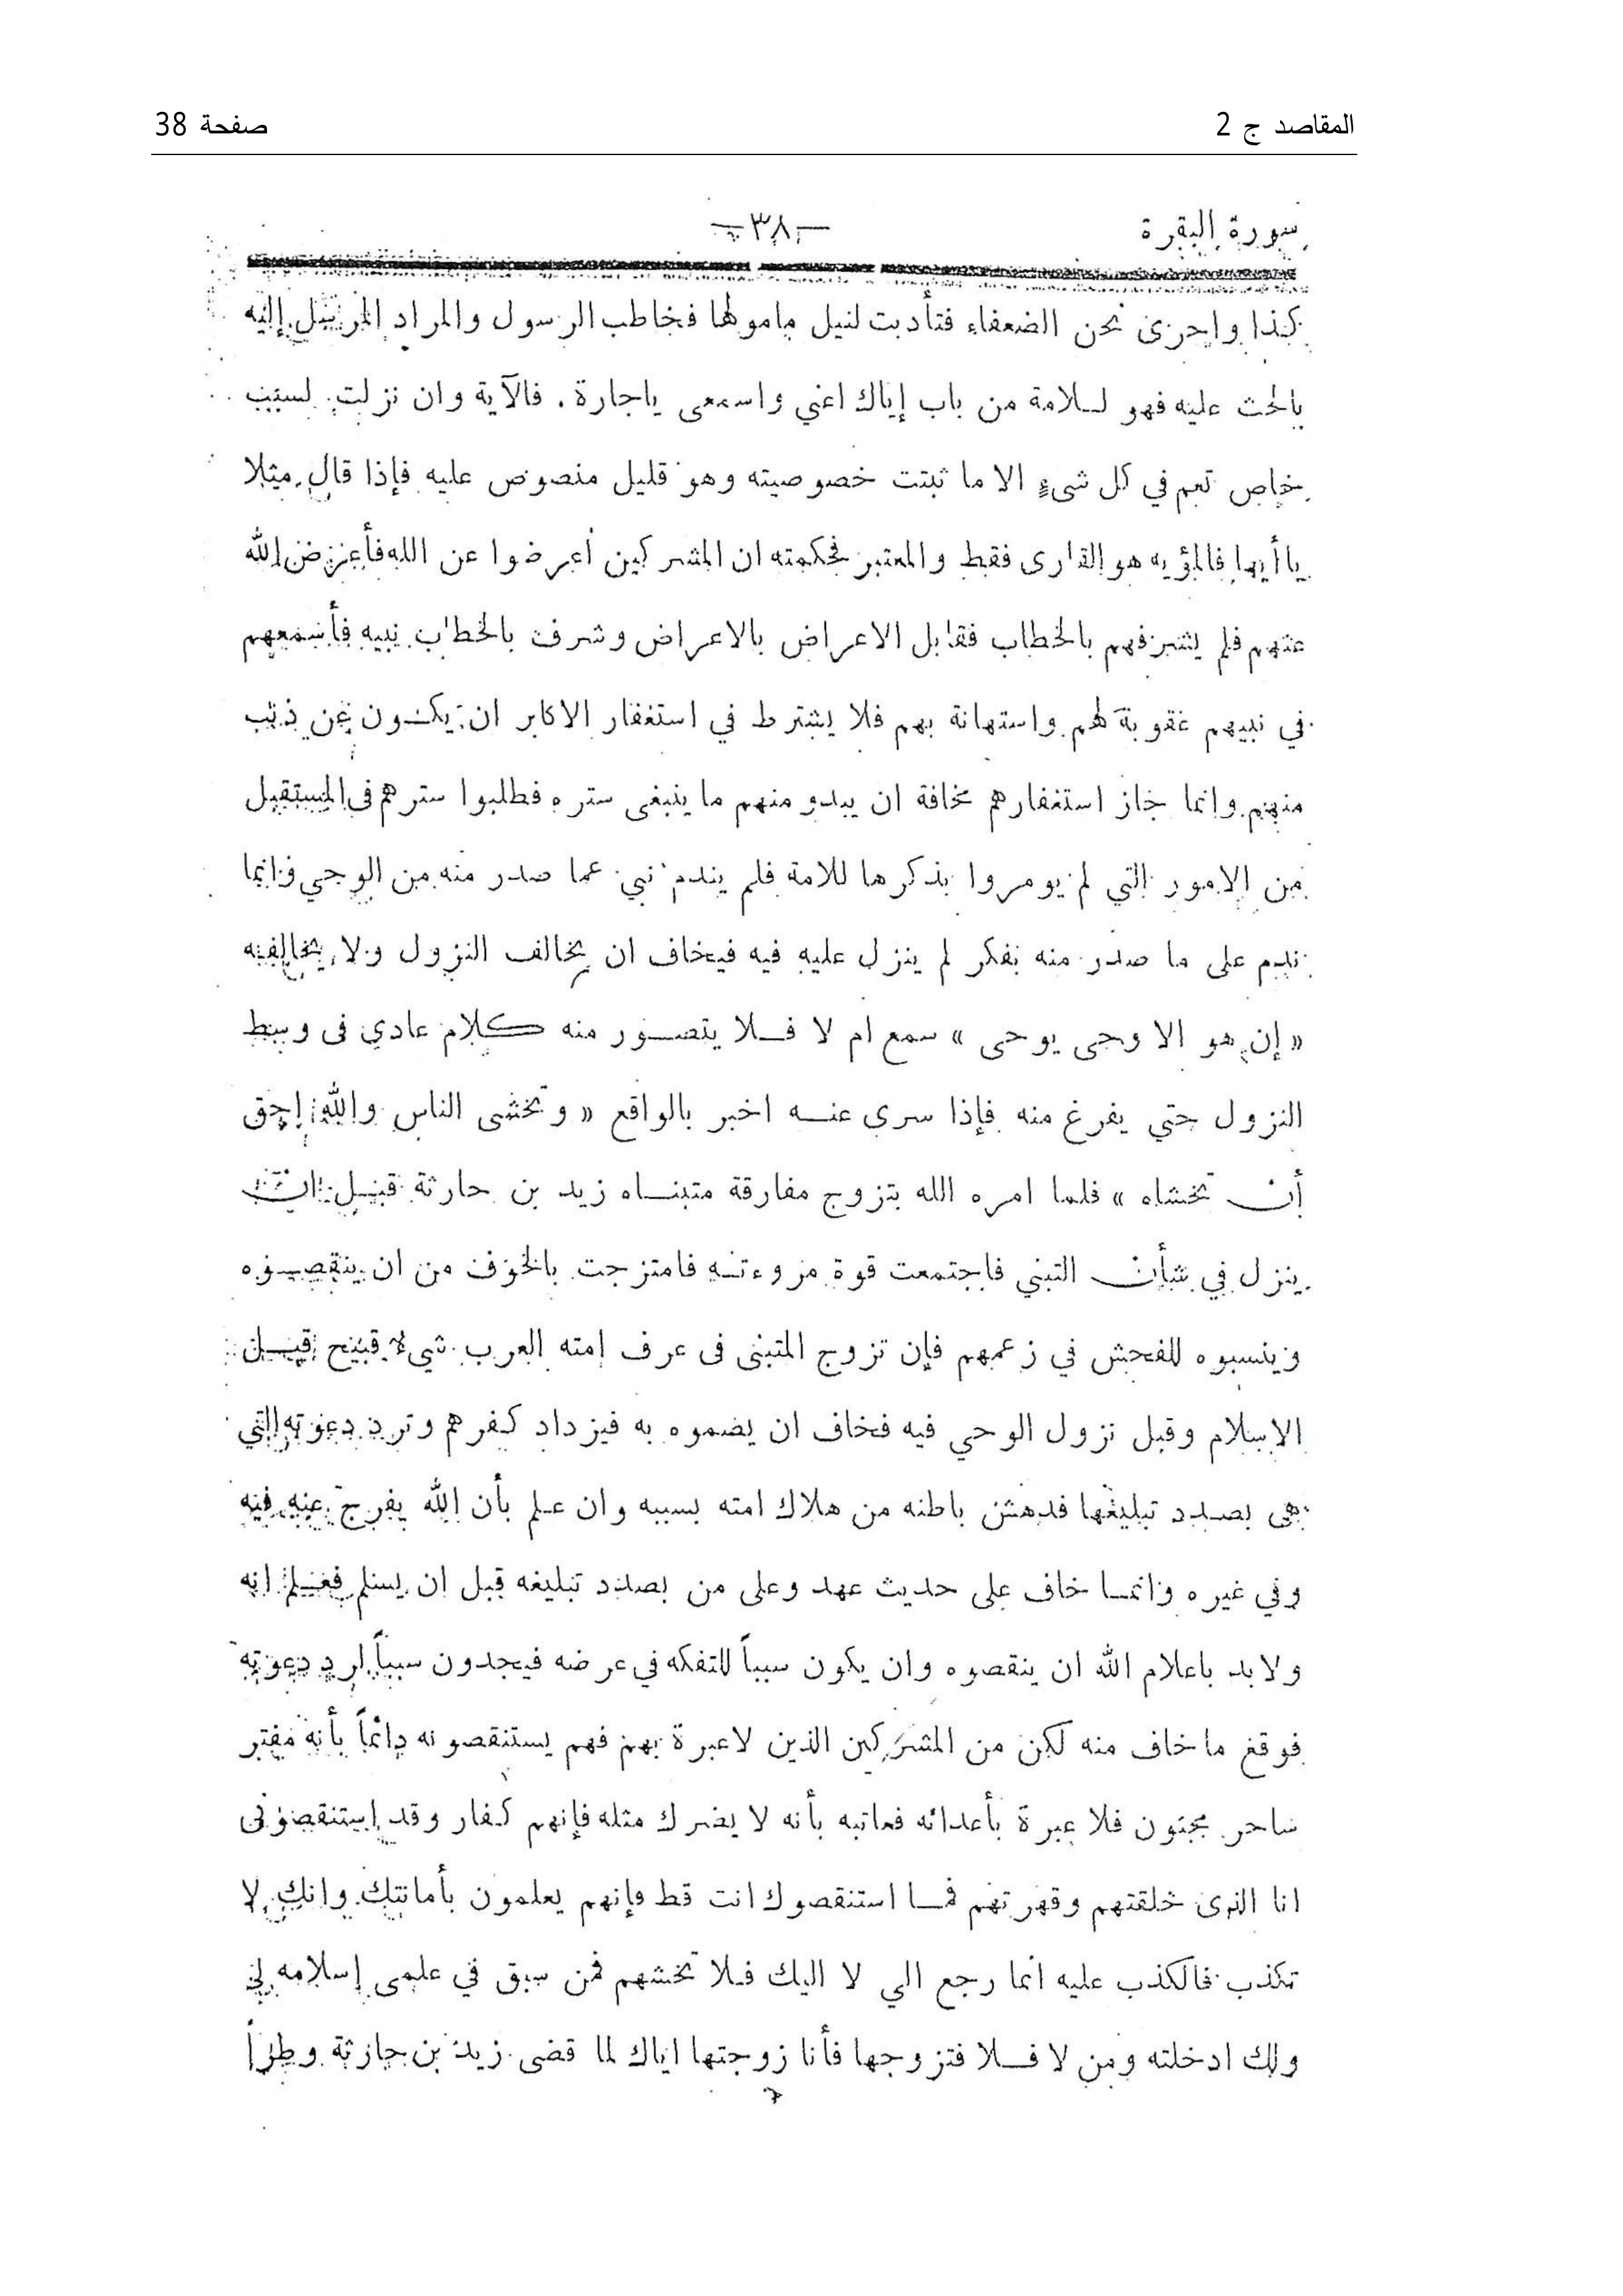 المقاصد ج 2
صفحة 38
سورة البقرة
—٣٨—
كذا واحرى نحن الضعفاء فتأدبت لنيل مامولها فخاطب الرسول والمراد المرسل إليه
بالحث عليه فهو للامة من باب إياك اعني واسمعى ياجارة . فالآية وان نزلت لسبب
خاص تعم في كل شىءٍ الا ما ثبتت خصوصيته وهو قليل منصوص عليه فإذا قال مثلا
ياأيها فالمؤيه هو القارى فقط والمعتبر فحكمته ان المشركين أعرضوا عن الله فأعرض الله
عنهم فلم يشرفهم بالخطاب فقابل الاعراض بالاعراض وشرف بالخطاب نبيه فأسمعهم
في نبيهم عقوبة لهم واستهانة بهم فلا يشترط في استغفار الاكابر ان يكون عن ذنب
منهم وانما جاز استغفارهم مخافة ان يبدو منهم ما ينبغى ستره فطلبوا سترهم فى المستقبل
من الامور التي لم يومروا بذكرها للامة فلم يندم نبي عما صدر منه من الوحي وانما
ندم على ما صدر منه بفكر لم ينزل عليه فيه فيخاف ان يخالف النزول ولا يخالفه
« إن هو الا وحى يوحى » سمع ام لا فلا يتصور منه كلام عادي فى وسط
النزول حتي يفرغ منه فإذا سرى عنه اخبر بالواقع « وتخشى الناس والله احق
أن تخشاه » فلما امره الله بتزوج مفارقة متبناه زيد بن حارثة قبل ان
ينزل في شأن التبني فاجتمعت قوة مروءته فامتزجت بالخوف من ان ينقصوه
وينسبوه للفحش في زعمهم فإن تزوج المتبنى فى عرف امته العرب شيء قبيح قبل
الاسلام وقبل نزول الوحي فيه فخاف ان يضموه به فيزداد كفرهم وترد دعوته التي
هى بصدد تبليغها فدهش باطنه من هلاك امته بسببه وان علم بأن الله يفرج عنه فيه
وفي غيره وانما خاف على حديث عهد وعلى من بصدد تبليغه قبل ان يسلم فعلم انه
ولابد باعلام الله ان ينقصوه وان يكون سبباً للتفكه في عرضه فيجدون سبباً لرد دعوته
فوقع ماخاف منه لكن من المشركين الذين لاعبرة بهم فهم يستنقصونه دائماً بأنه مفتر
ساحر مجنون فلا عبرة بأعدائه فعاتبه بأنه لا يضرك مثله فإنهم كفار وقد استنقصونى
انا الذى خلقتهم وقهرتهم فما استنقصوك انت قط فإنهم يعلمون بأمانتك وانك لا
تكذب فالكذب عليه انما رجع الي لا اليك فلا تخشهم فمن سبق في علمى إسلامه لي
ولك ادخلته ومن لا فلا فتزوجها فأنا زوجتها اياك لما قضى زيد بن حارثة وطراً